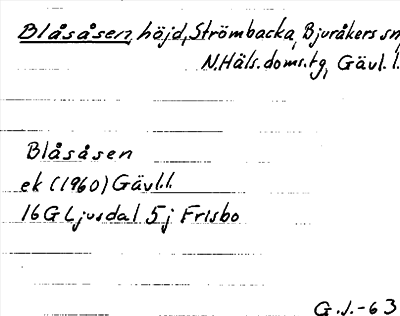 Blåsåsen, höjd, Strömbacka, Bjuråkers sn,
N.Häls.doms.tg, Gävl.l.
Blåsåsen
ek (1960) Gävl.l.
16G Ljusdal 5j Frisbo
G.J.-63